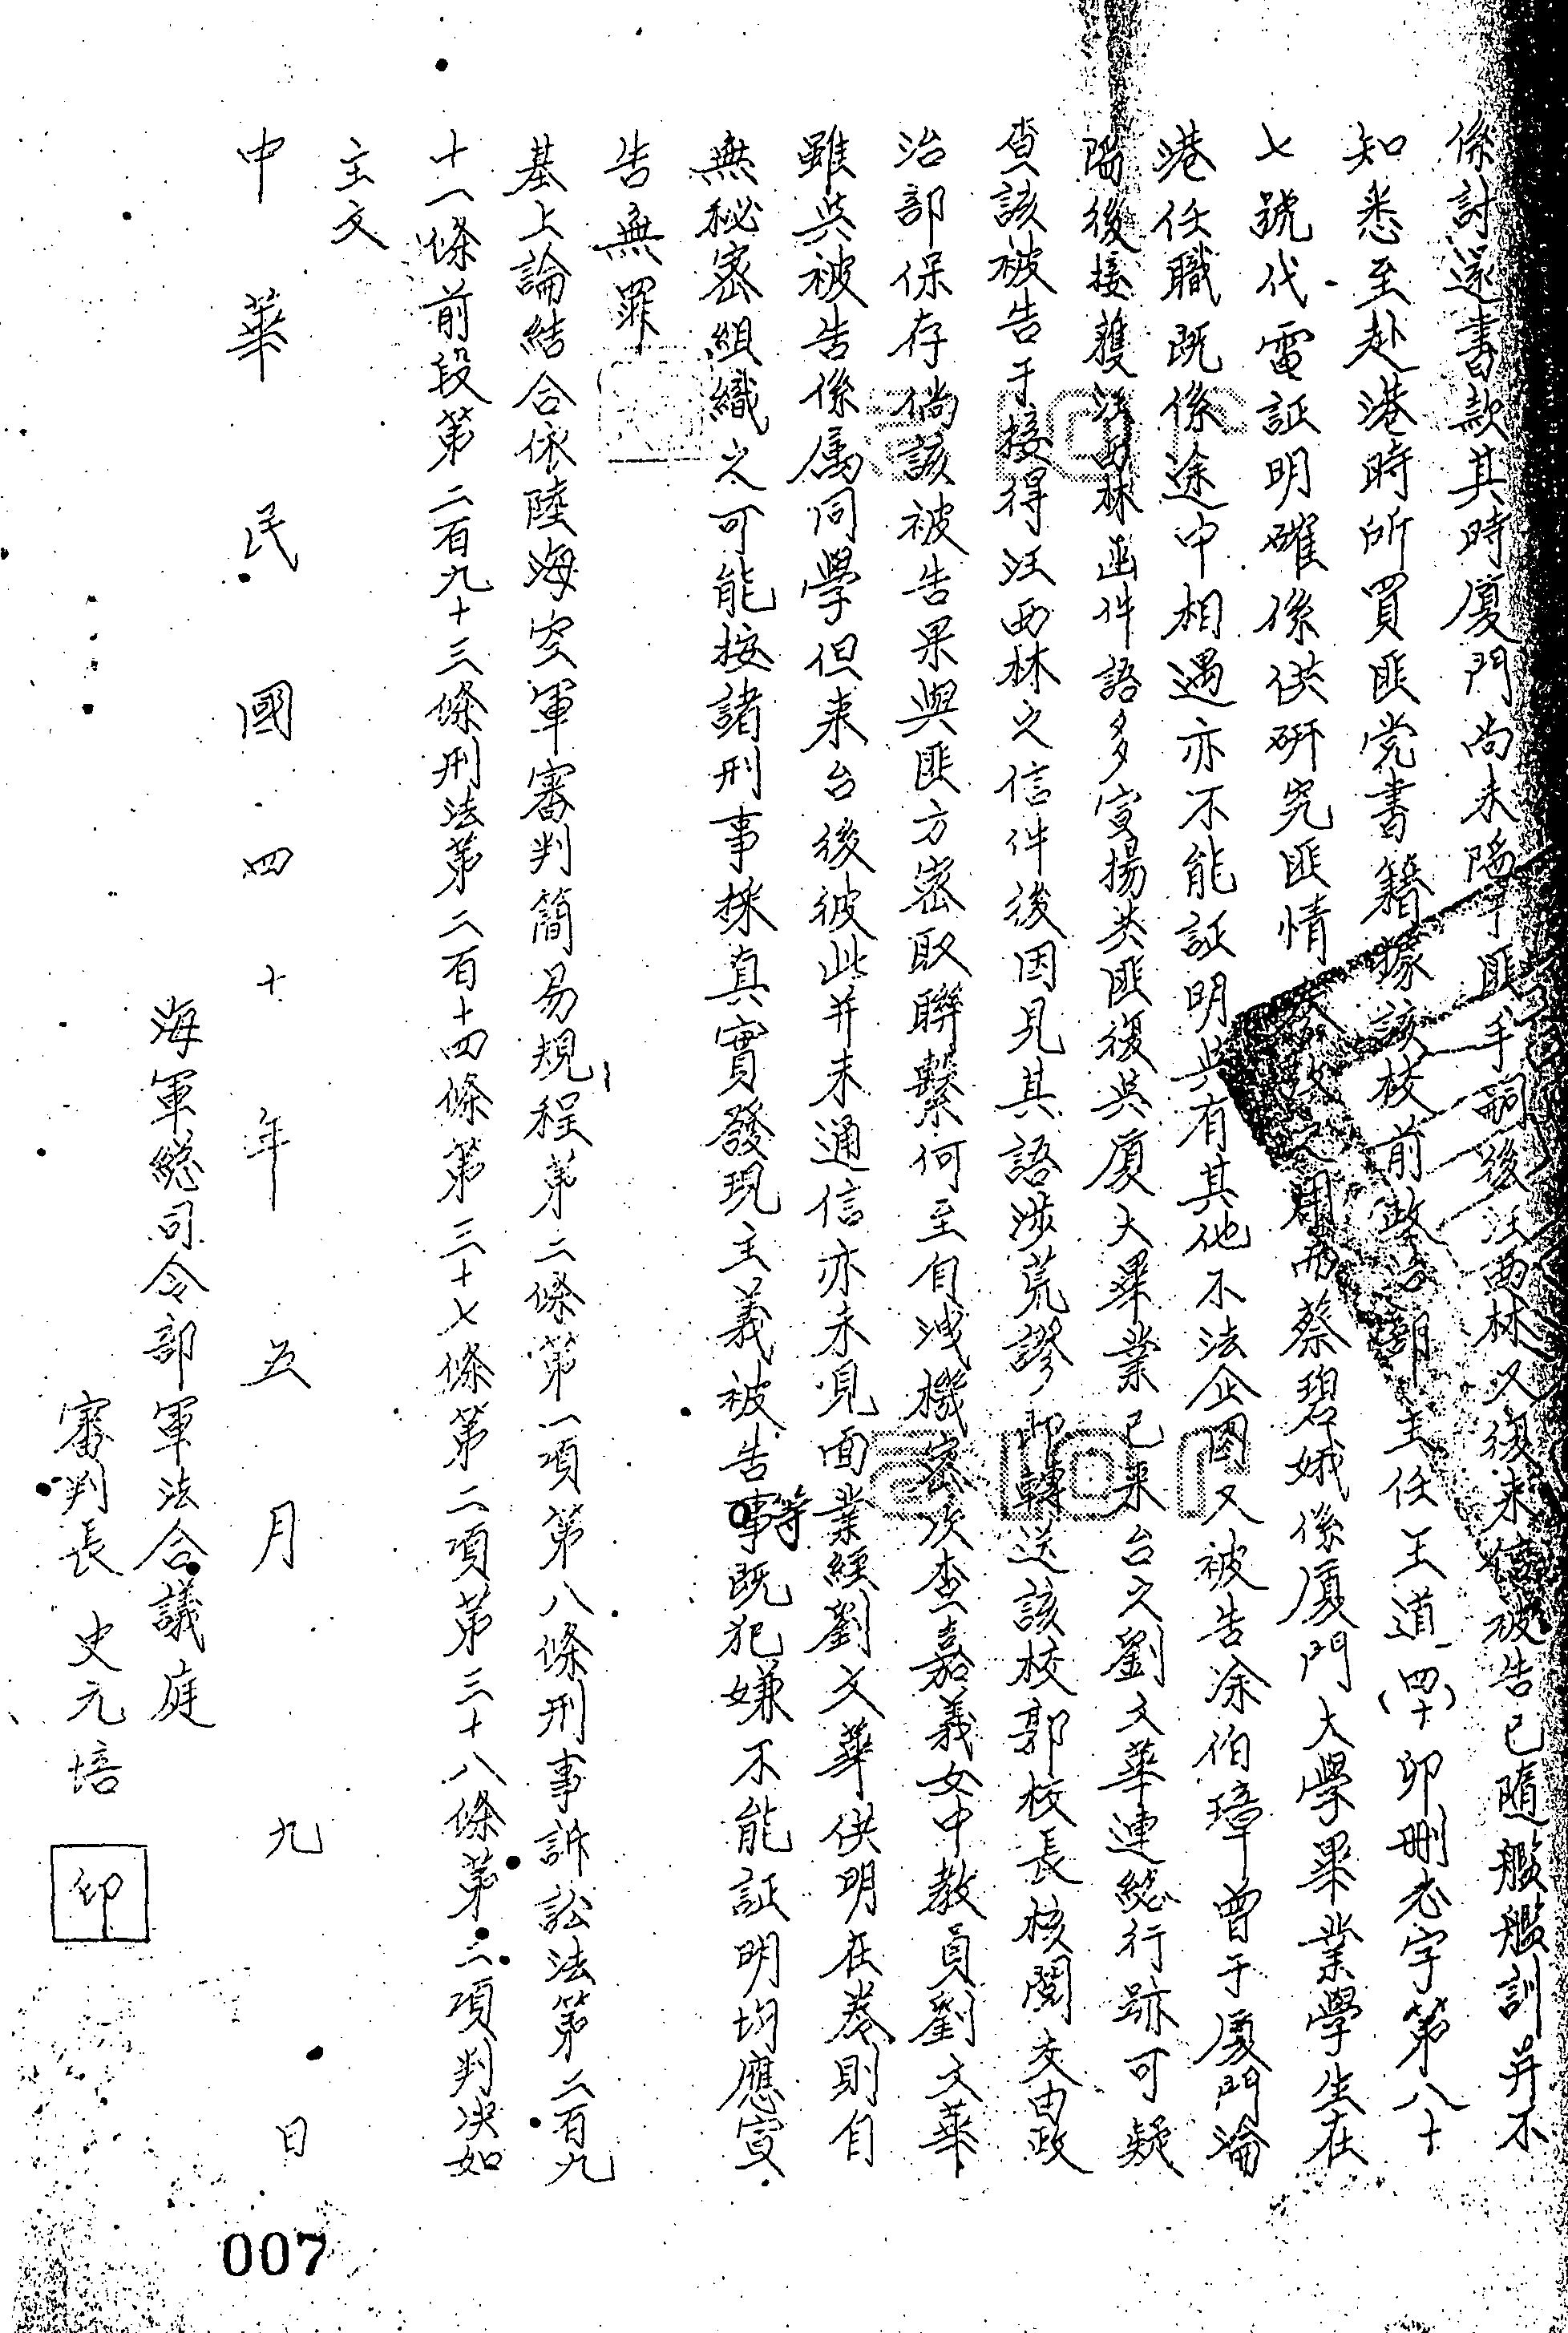 係討還書款其時厦門尚未陷于匪手嗣後汪西林又復来信被告已隨艦艦訓并不
知悉至赴港時所買匪党書籍據該校前政治部主任王道(四十)卯刪志字第八十
七號代電証明確係供研究匪情之用而蔡碧娥係厦門大學畢業學生在
港任職既係途中相遇亦不能証明其有其他不法企圖又被告涂伯璋曾于厦門淪
陷後接獲汪西林函件語多宣揚共匪復與厦大畢業已来台之劉文華連絡行跡可疑
查該被告于接得汪西林之信件後因見其語涉荒謬即轉送該校郭校長核閱交由政
治部保存倘該被告果與匪方密取聯繫何至自洩機密次查嘉義女中教員劉文華
雖與被告係属同學但来台後彼此并未通信亦未見面業經劉文華供明在卷則自
無秘密組織之可能按諸刑事採真實發現主義被告等事既犯嫌不能証明均應宣
告無罪
基上論結合依陸海空軍審判簡易規程第二條第一項第八條刑事訴訟法第二百九
十一條前段第二百九十三條刑法第二百十四條第三十七條第二項第三十八條第二項判决如
主文
中華民國四十年五月九日
海軍總司令部軍法合議庭
審判長 史元培 印
007